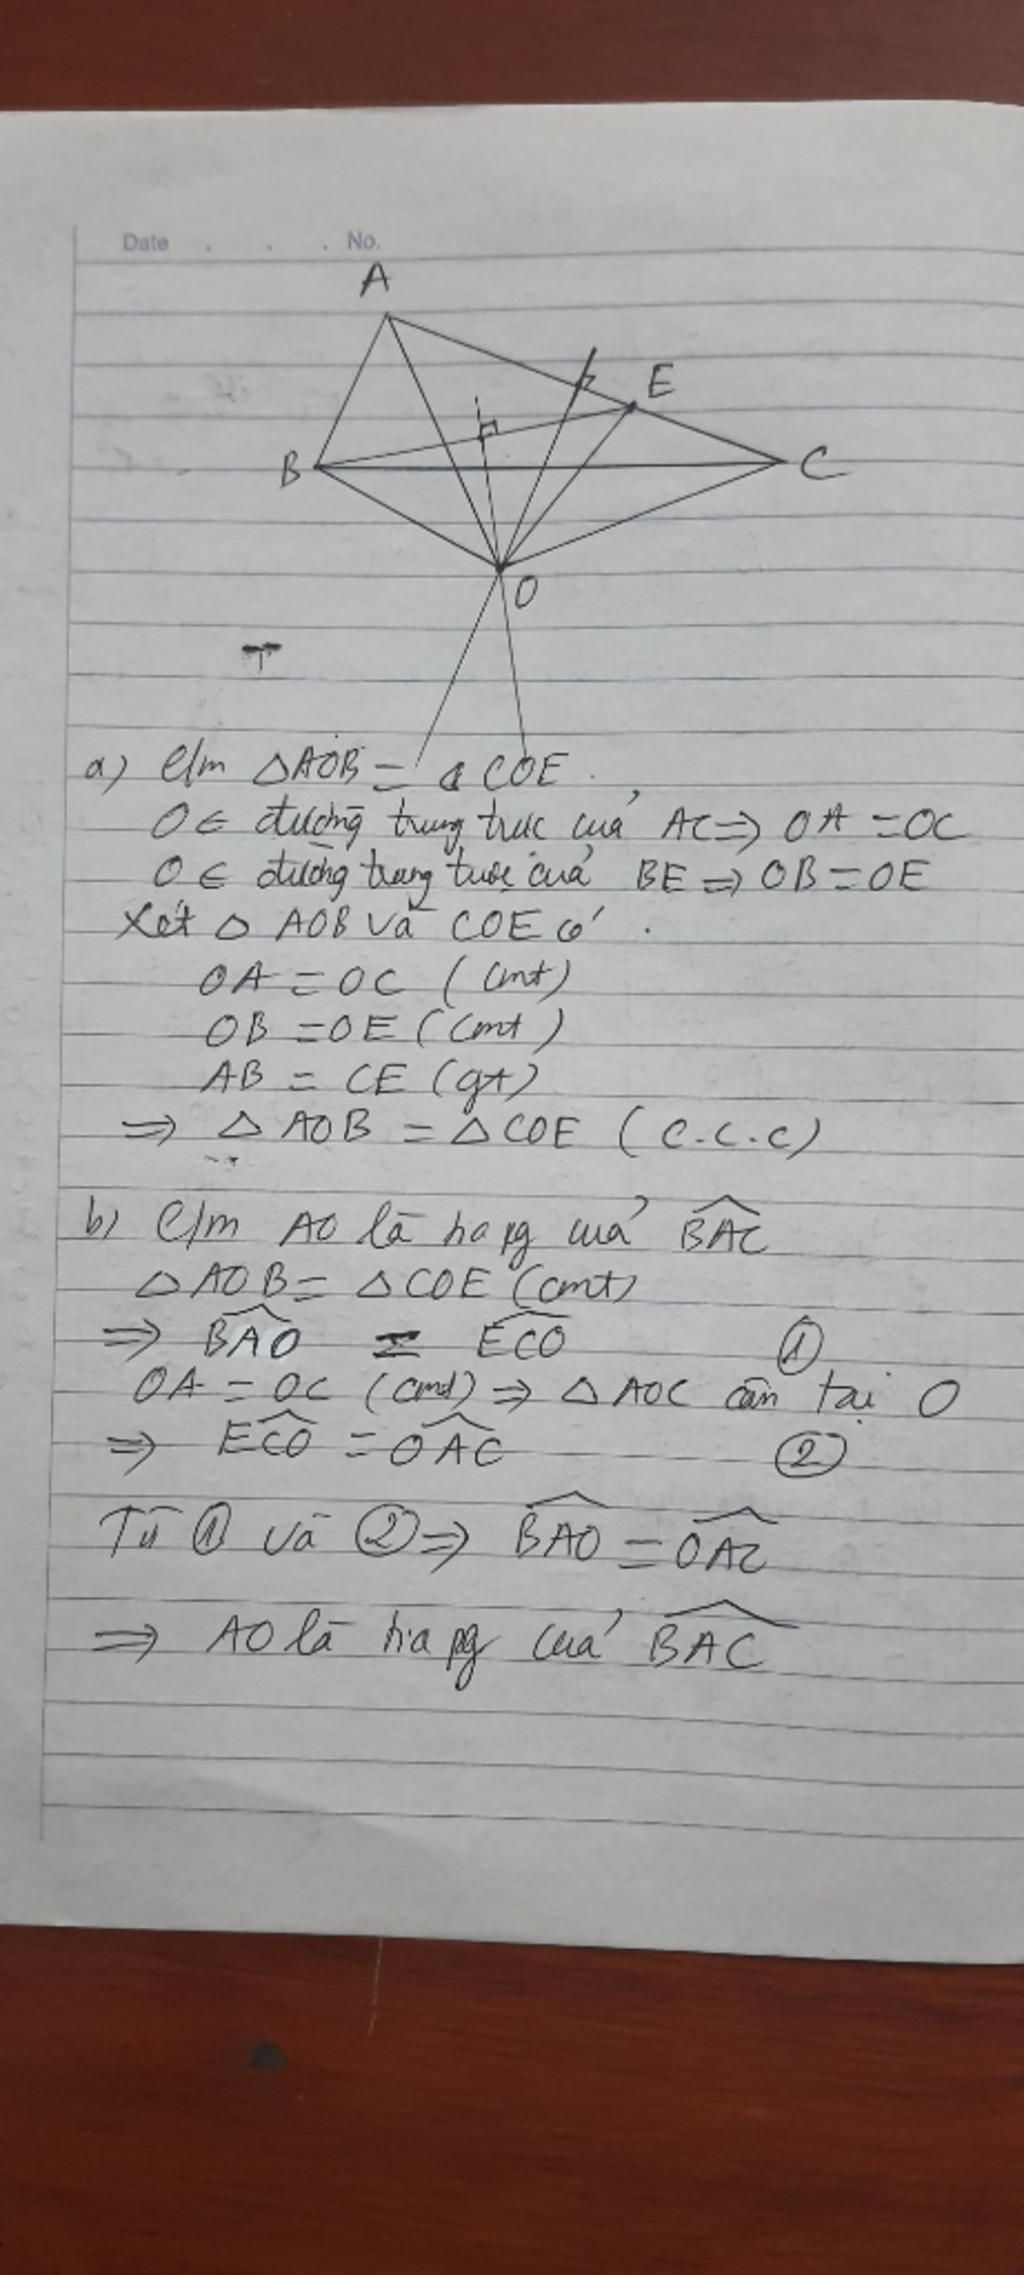 Date . . . No.
A
E
B
C
O
a) C/m △AOB = △ COE.
O ∈ đường trung trực của AC => OA = OC
O ∈ đường trung trực của BE => OB = OE
Xét △ AOB và COE có
OA = OC (cmt)
OB = OE (cmt)
AB = CE (gt)
=> △ AOB = △ COE (c.c.c)
b) C/m AO là tia pg của BAC
△ AOB = △ COE (cmt)
=> BAO = ECO ①
OA = OC (cmt) => △ AOC cân tại O
=> ECO = OAC ②
Từ ① và ② => BAO = OAC
=> AO là tia pg của BAC